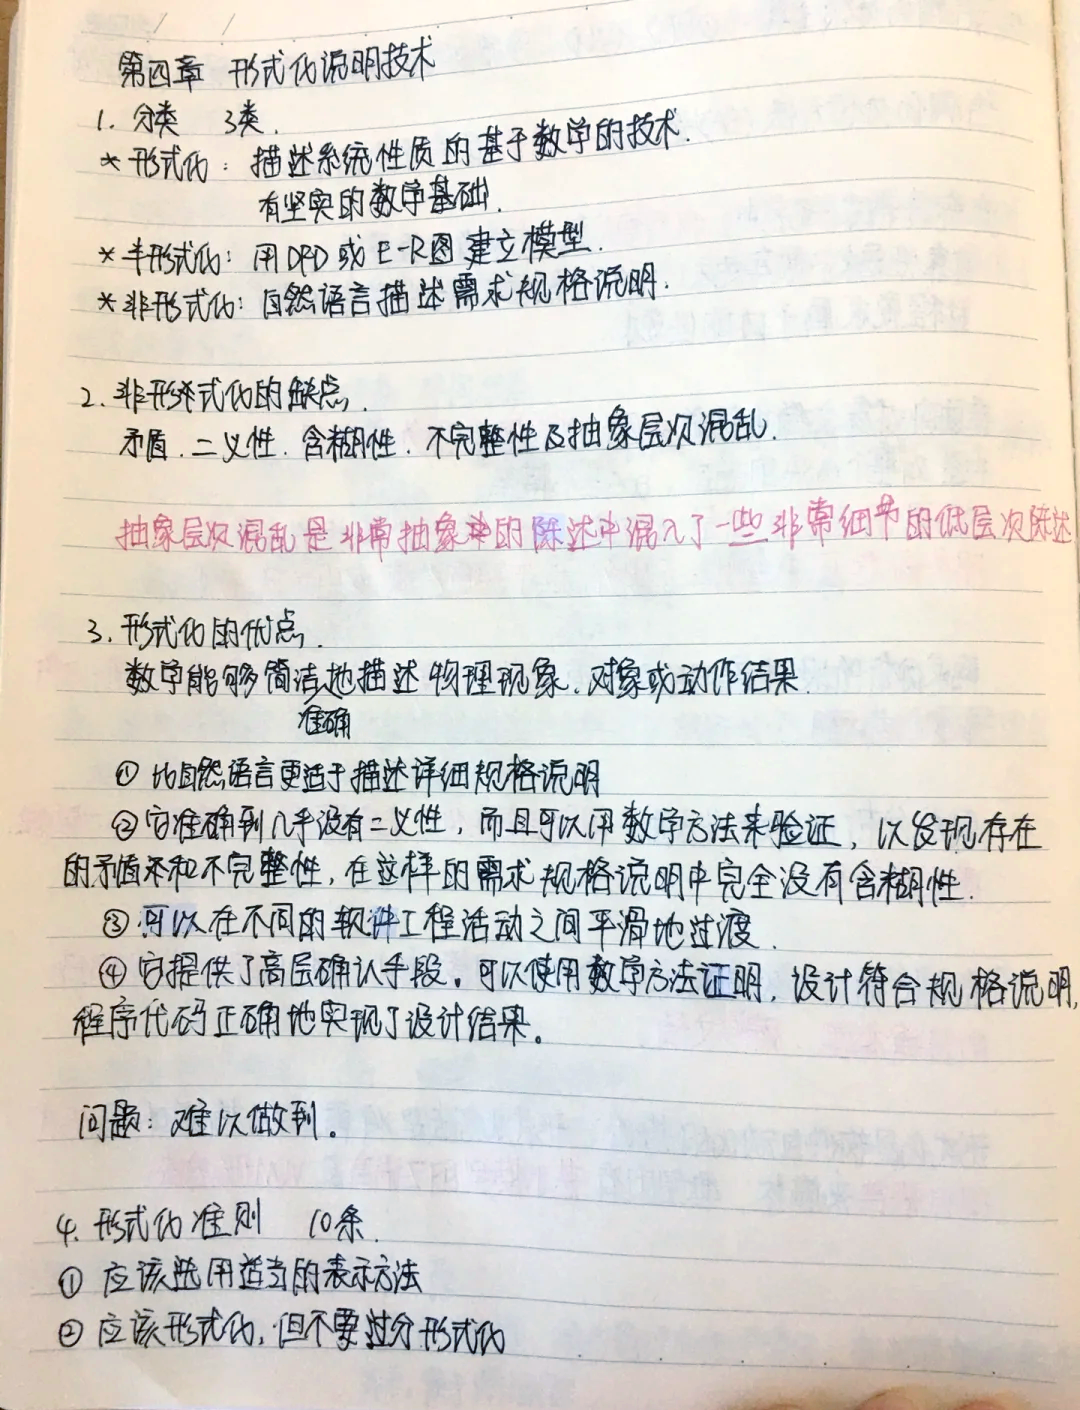 第四章 形式化说明技术
1. 分类 3类.
* 形式化: 描述系统性质的基于数学的技术.
有坚实的数学基础.
* 半形式化: 用DPD或E-R图建立模型.
* 非形式化: 自然语言描述需求规格说明.
2. 非形式化的缺点.
矛盾.二义性.含糊性.不完整性及抽象层次混乱.
抽象层次混乱是非常抽象的陈述中混入了一些非常细节的低层次陈述
3. 形式化的优点.
数学能够简洁地描述物理现象.对象或动作结果.
准确
① 比自然语言更适于描述详细规格说明
② 它准确到几乎没有二义性,而且可以用数学方法来验证,以发现存在
的矛盾和不完整性,在这样的需求规格说明中完全没有含糊性.
③ 可以在不同的软件工程活动之间平滑地过渡.
④ 它提供了高层确认手段。可以使用数学方法证明,设计符合规格说明,
程序代码正确地实现了设计结果。
问题: 难以做到。
4. 形式化准则 10条.
① 应该选用适当的表示方法
② 应该形式化,但不要过分形式化